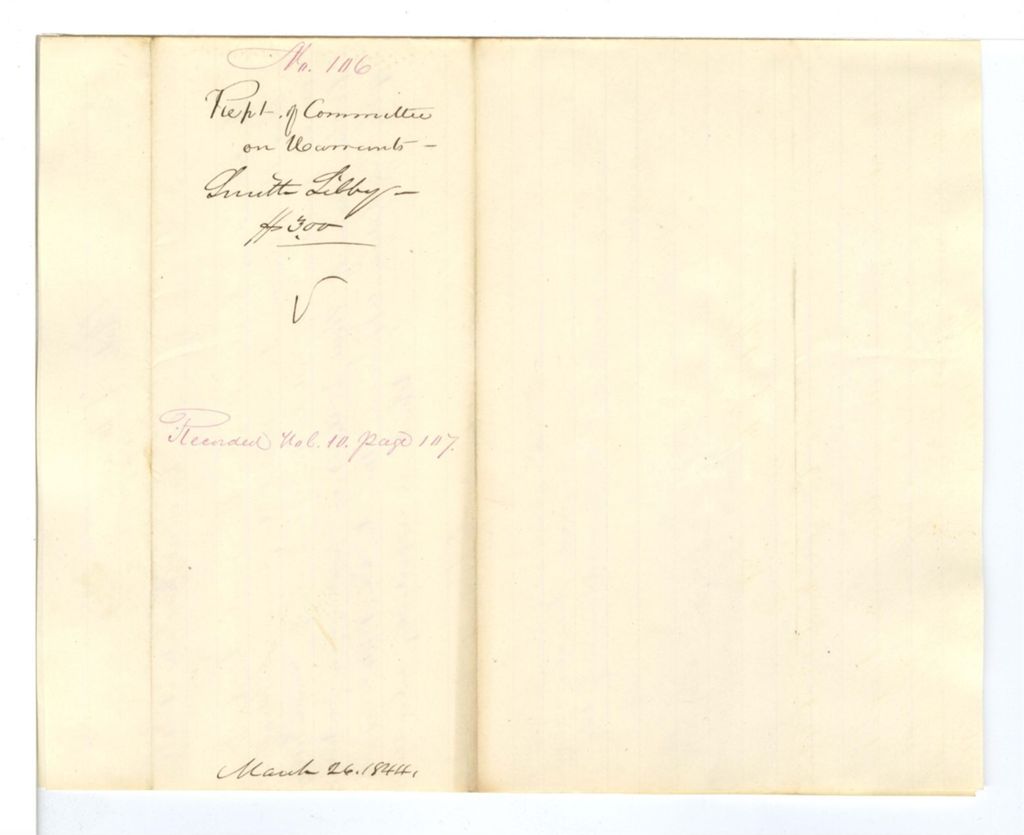 No. 106
Rept. of Committee
on Warrants -
Smith Libby -
$300
Recorded Vol. 10. page 107.
March 26. 1844.